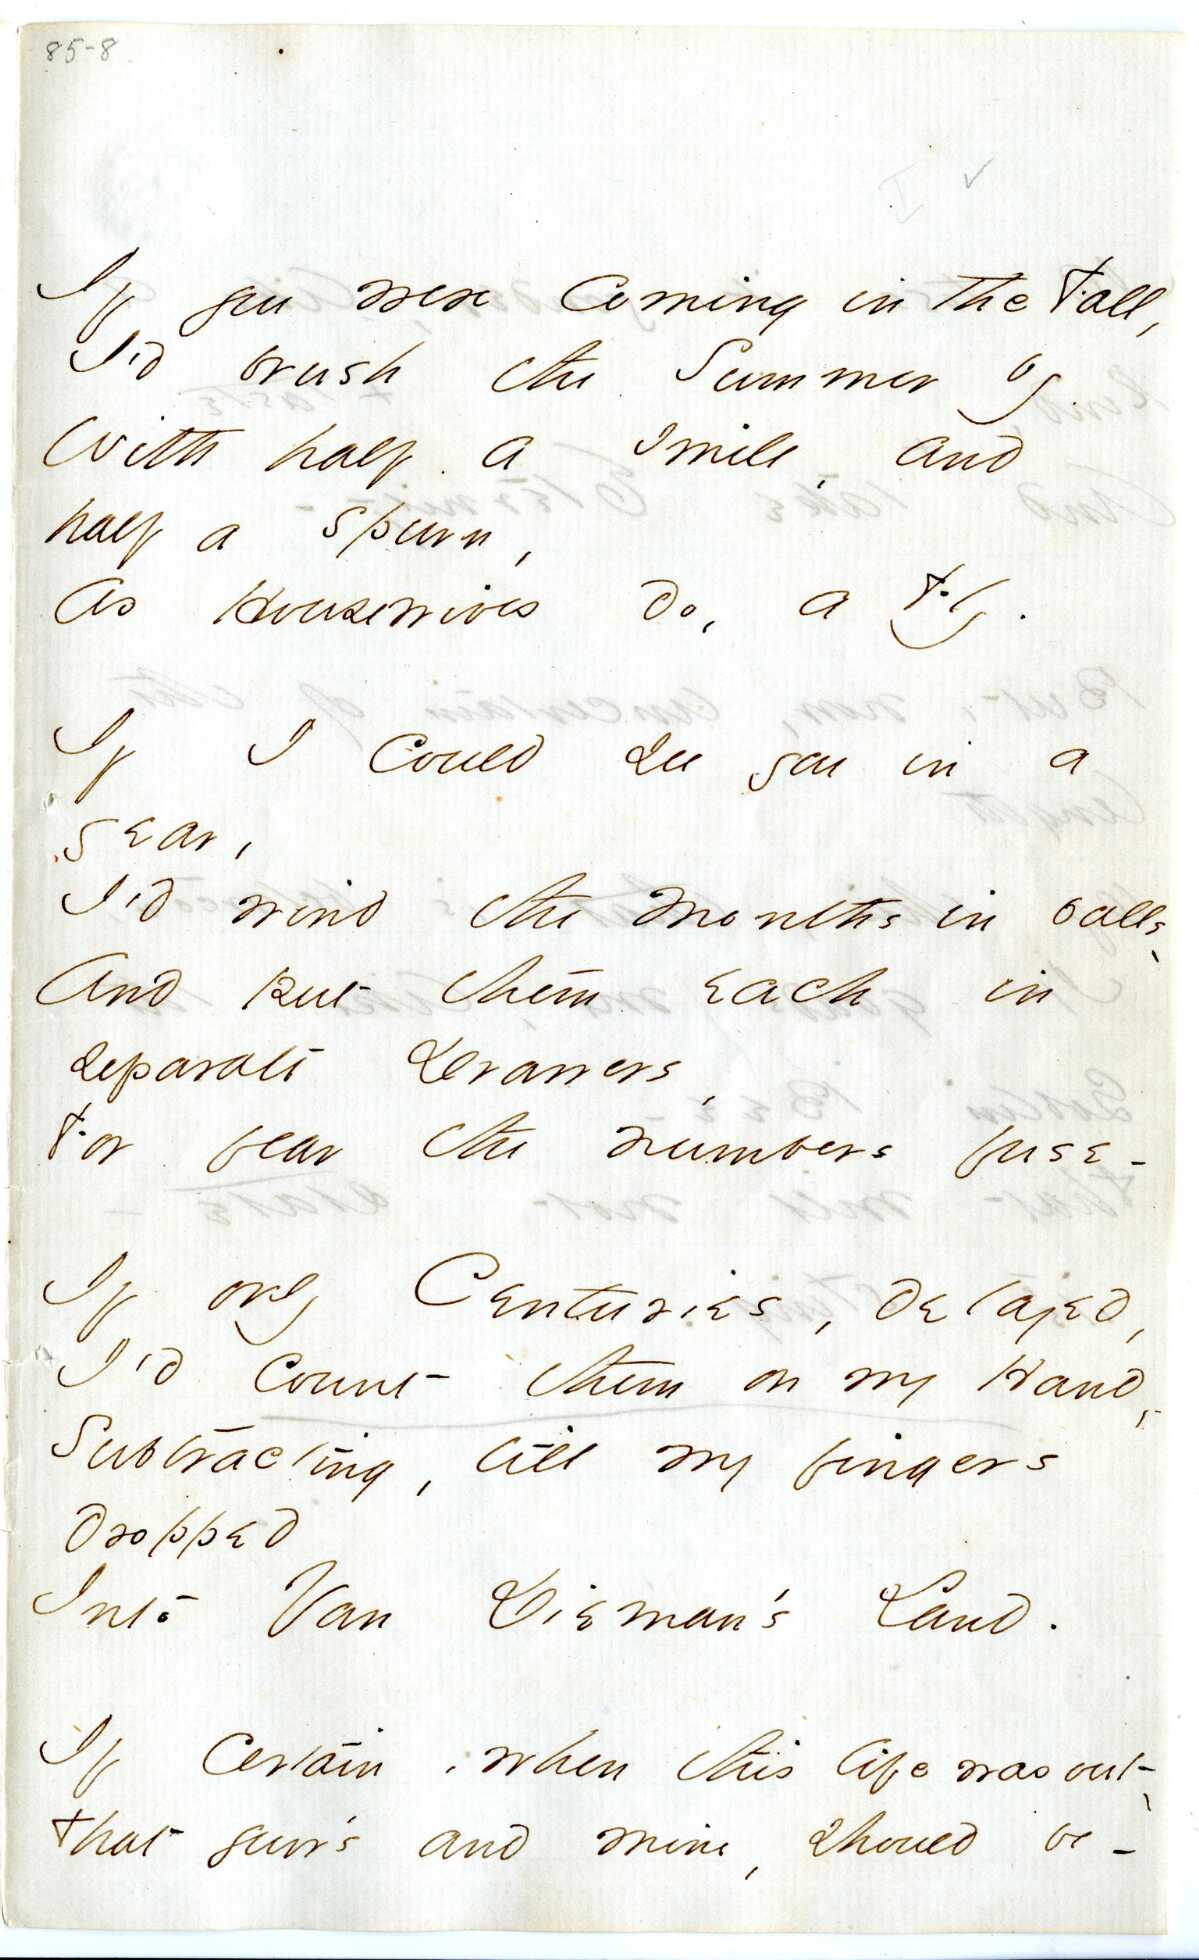 85-8
If you were coming in the Fall,
I'd brush the Summer by
With half a smile, and
half a spurn,
As Housewives do, a Fly.
If I could see you in a
year,
I'd wind the months in balls,
And put them each in
separate Drawers,
For fear the numbers fuse -
If only Centuries, delayed,
I'd count them on my Hand,
Subtracting, till my fingers
dropped
Into Van Dieman's Land.
If certain, when this life was out,
That your's and mine, should be -